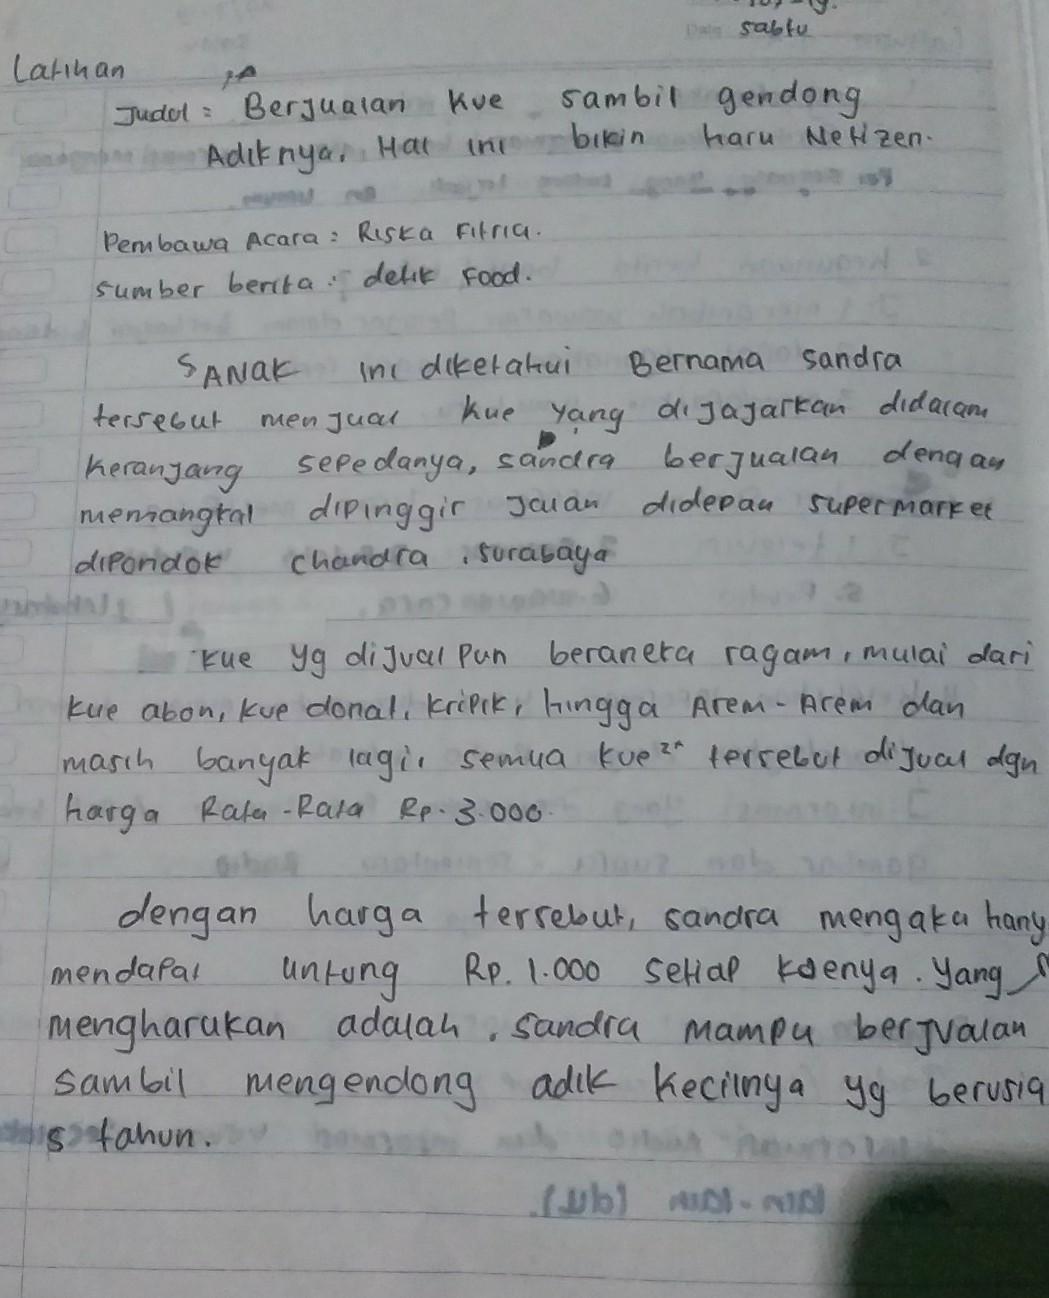 sabtu
Latihan
Judul : Berjualan kue sambil gendong
Adiknya, Hal ini bikin haru Netizen.
Pembawa Acara : Riska Fitria.
sumber berita : detik Food.
SANAK ini diketahui Bernama sandra
tersebut menjual kue yang dijajarkan didalam
keranjang sepedanya, sandra berjualan dengan
memangkal dipinggir Jalan didepan supermarket
dipondok chandra, surabaya
kue yg dijual pun beraneka ragam, mulai dari
kue abon, kue donat, kripik, hingga Arem-Arem dan
masih banyak lagi, semua kue² tersebut dijual dgn
harga Rata-Rata Rp. 3.000.
dengan harga tersebut, sandra mengaku hany
mendapat untung Rp. 1.000 setiap kuenya. Yang
mengharukan adalah, sandra mampu berjualan
sambil mengendong adik kecilnya yg berusia
5 tahun.